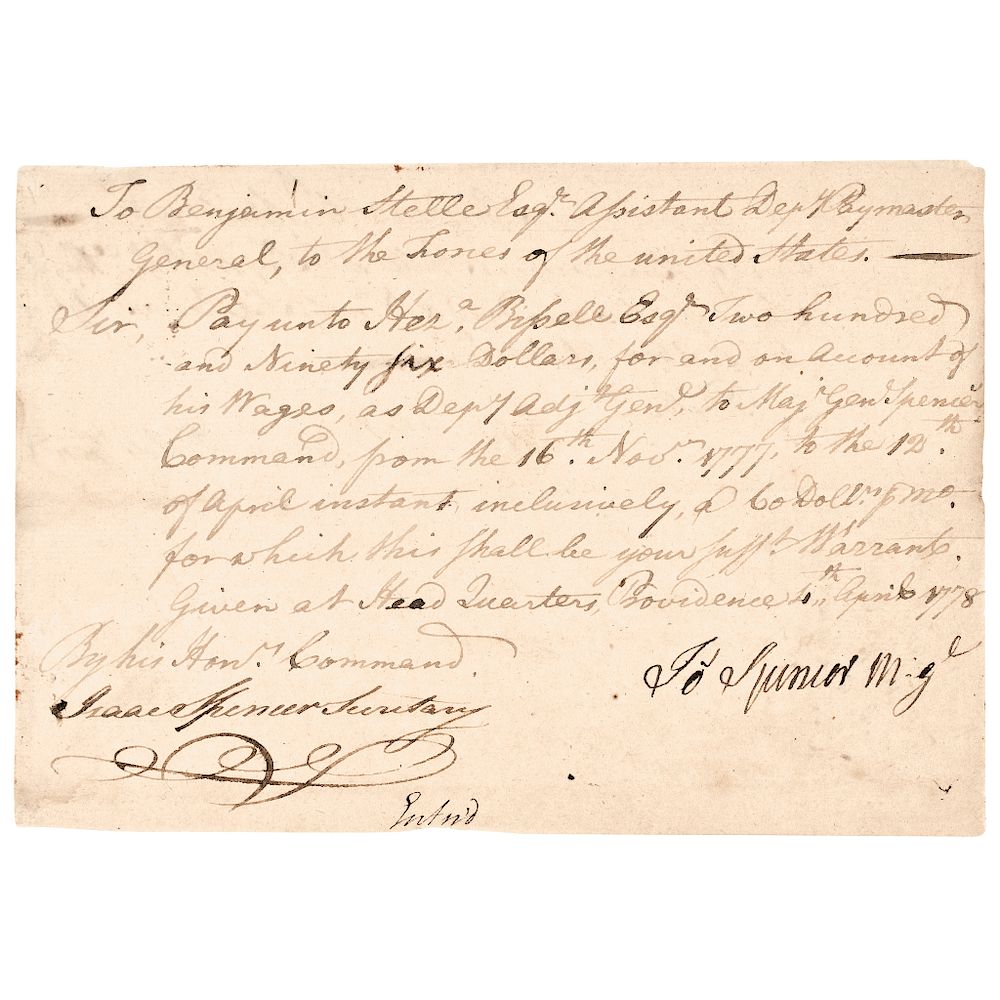 To Benjamin Stelle Esqr. Assistant Depy. Paymaster
General, to the Forces of the united States. —
Sir, Pay unto Heza. Bissell Esqr. Two hundred
and Ninety six Dollars, for and on account of
his Wages, as Depy. Adjt. Genl. to Majr. Genl. Spencer's
Command, from the 16th. Novr. 1777, to the 12th.
of April instant inclusively, @ 60 Dollrs. p mo.
for which this shall be your Sufft. Warrant.
Given at Head Quarters, Providence April 1778
By his Honrs. Command
Isaac Spencer Secretary
Jos Spencer M. Gl
Entrd